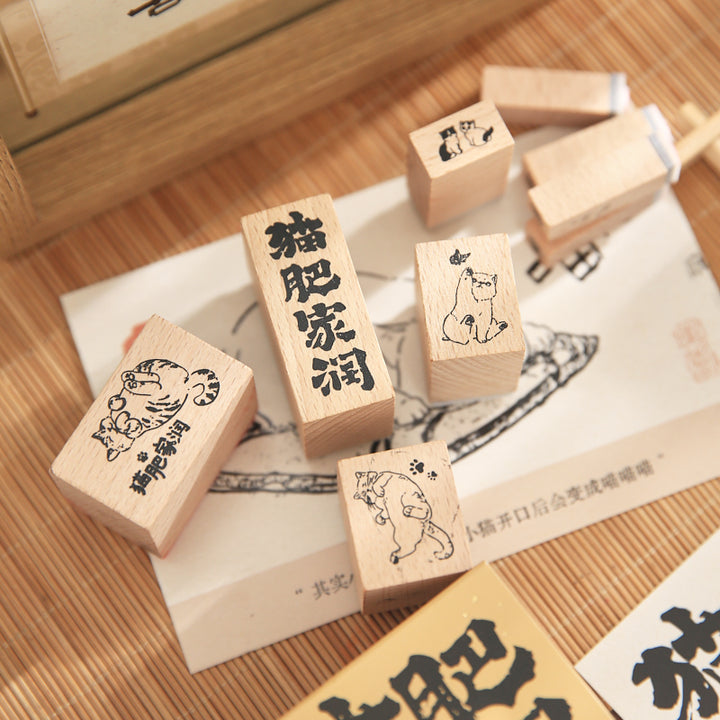 猫肥家润
猫肥家润
"其实
小猫开口后会变成喵喵喵"
肥